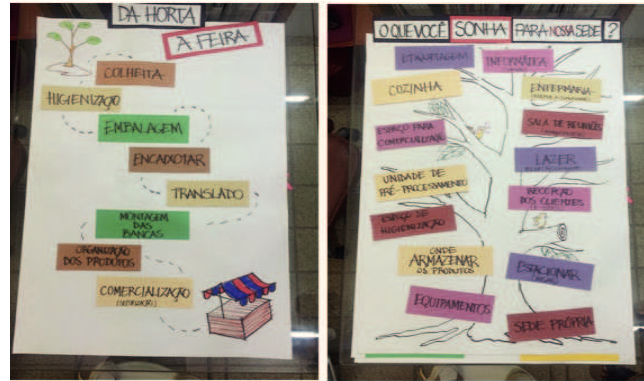 DA HORTA
A FEIRA
COLHEITA
HIGIENIZAÇÃO
EMBALAGEM
ENCAIXOTAR
TRANSLADO
MONTAGEM
DAS
BANCAS
ORGANIZAÇÃO
DOS PRODUTOS
COMERCIALIZAÇÃO
O QUE VOCÊ SONHA PARA NOSSA SEDE ?
ETIQUETAGEM
INFORMÁTICA
COZINHA
ENFERMARIA
ESPAÇO PARA
COMERCIALIZAÇÃO
SALA DE REUNIÕES
LAZER
UNIDADE DE
PRÉ-PROCESSAMENTO
RECEPÇÃO
DOS CLIENTES
ESPAÇO DE
HIGIENIZAÇÃO
ONDE
ARMAZENAR
OS PRODUTOS
ESTACIONAR
EQUIPAMENTOS
SEDE PRÓPRIA